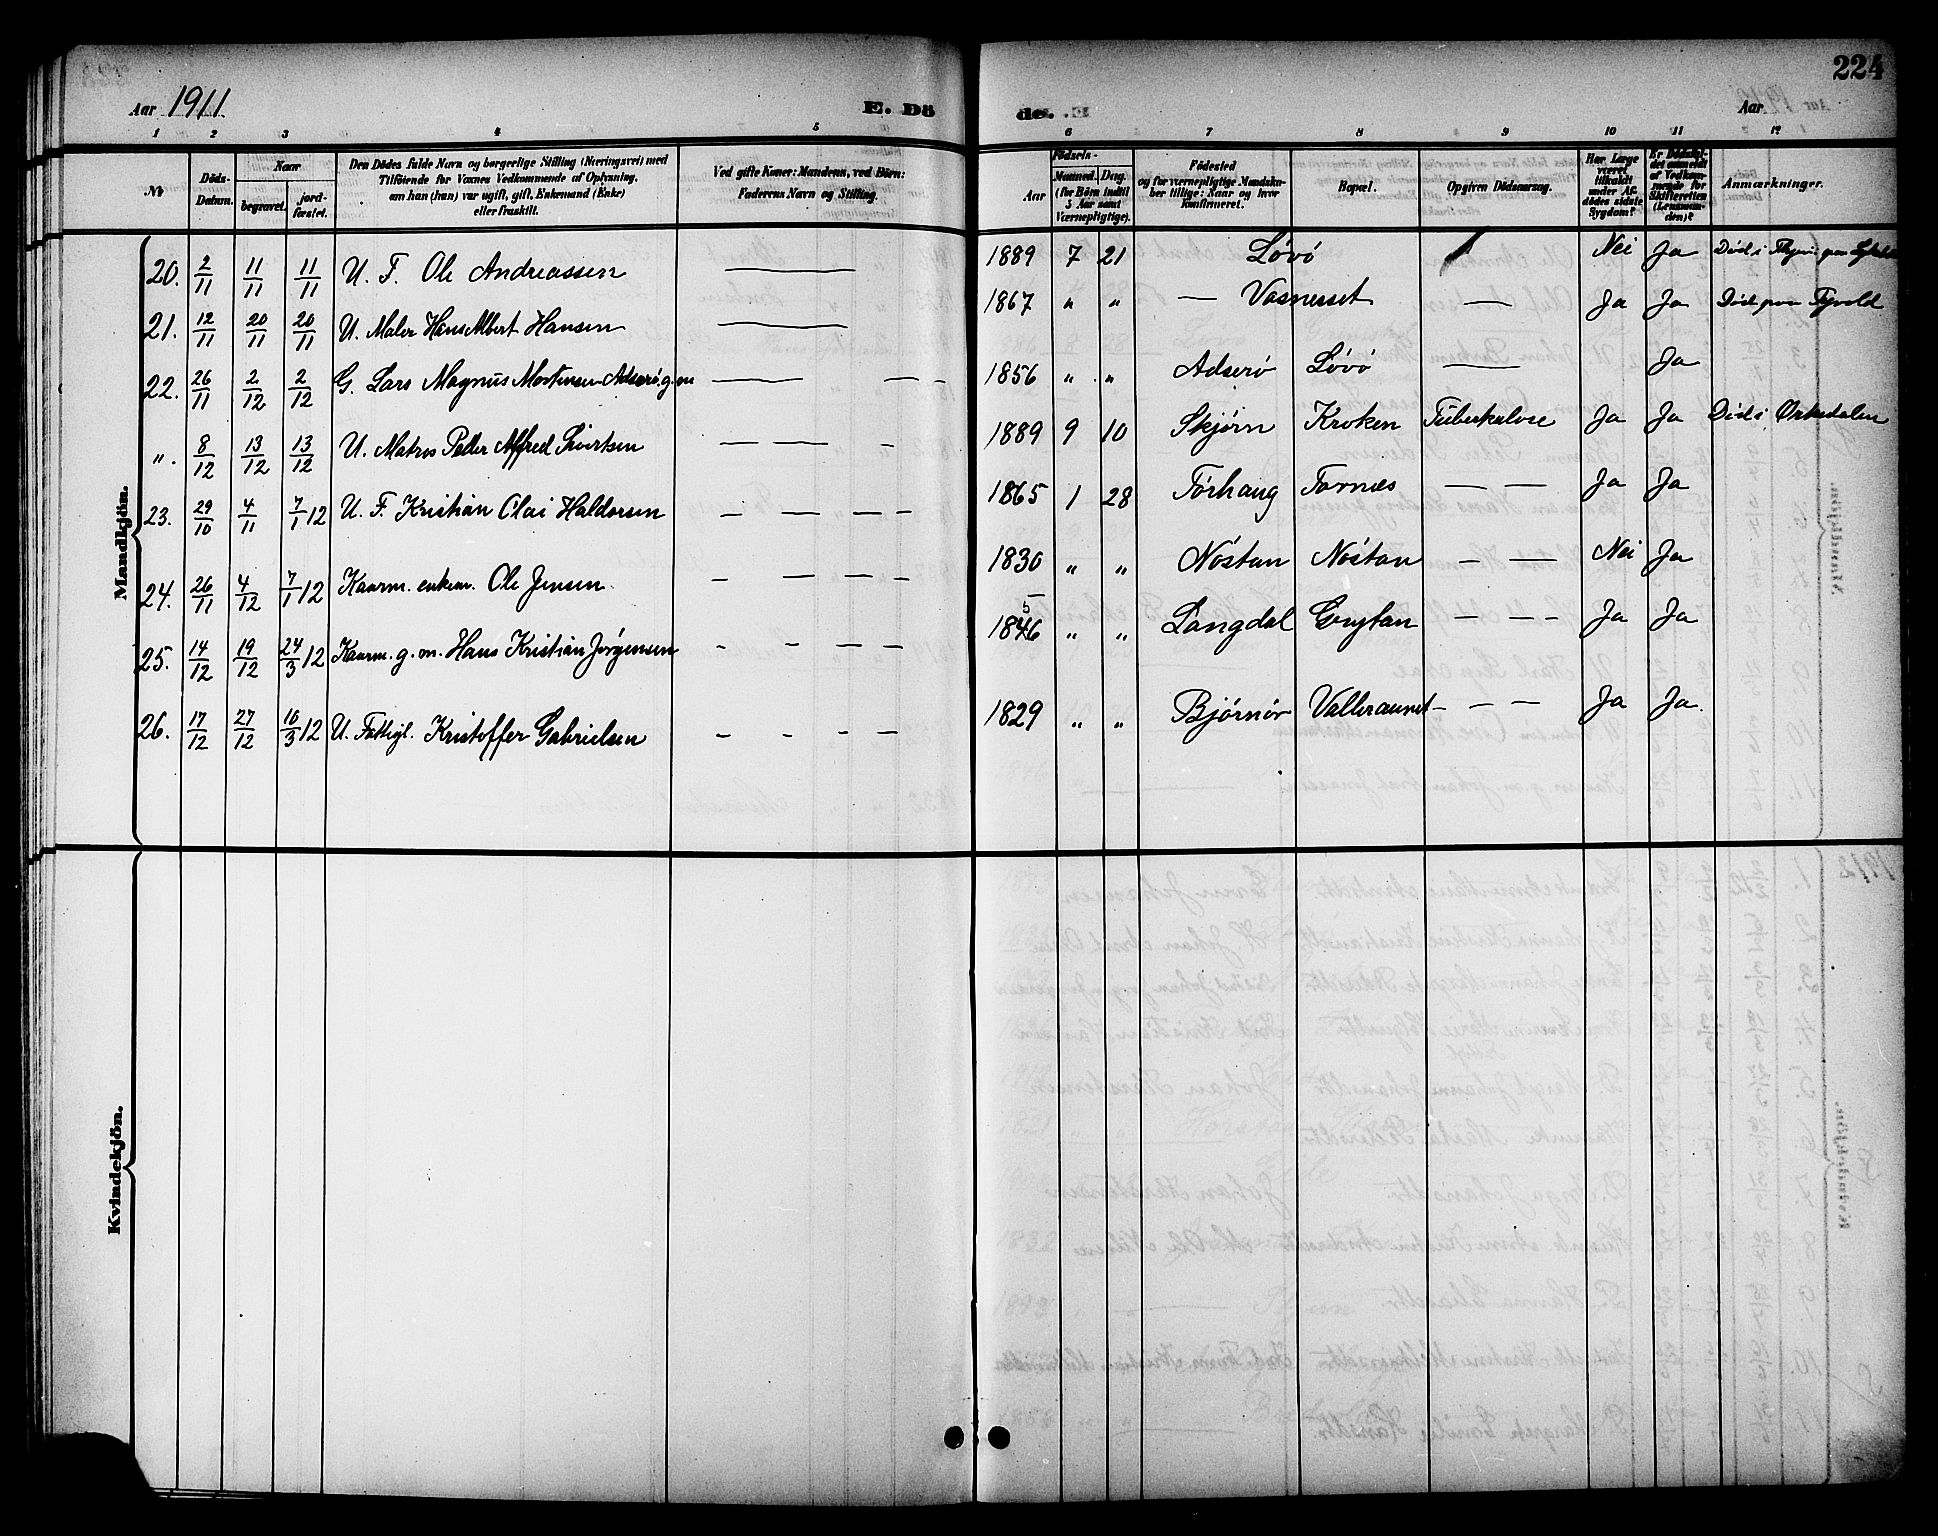 224
Aar 1911
E. Dö
de.
Aar
1 2 3 4 5 6 7 8 9 10 11 12
No
Döds-Datum.
Naar
begravet.
jord-fæstet.
Den Dödes fulde Navn og borgerlige Stilling (Næringsvei) med
Tilföiende for Voxnes Vedkommende af Oplysning,
om han (hun) var ugift, gift, Enkemand (Enke)
eller fraskilt.
Ved gifte Koner: Mandens, ved Börn:
Faderens Navn og Stilling.
Födsels-
Aar
Maaned. Dag.
(for Börn indtil
Værnepligtige).
Födested
og for værnepligtige Mandska-
ber tillige: Naar og hvor
konfirmeret.
Bopæl.
Opgiven Dödsaarsag.
Har Læge
været
tilkaldt
under Af-
dödes sidste
Sygdom?
Er Dödsfal-
det anmeldt
af Vedkom-
mende for
Skifteretten
(Lensman-
den)?
Anmærkninger.
Mandkjön.
20. 2/11 11/11 11/11 U. F. Ole Andreassen — 1889 7 21 Løvø Nei Ja Død i
21. 12/11 20/11 20/11 U. Maler Hans Albert Hansen — 1867 " " — Vasnesset — Ja Ja Død paa
22. 26/11 2/12 2/12 G. Lars Magnus Mortensen Adserø g.m — — - 1856 " " Adserø Løvø — Ja
". 8/12 13/12 13/12 U. Matros Peder Alfred Sivertsen — — - 1889 9 10 Skjørn Kroken Tuberkulose Ja Ja Død i Orkedalen
23. 29/10 4/11 7/1 12 U. F. Kristian Olai Haldorsen — — — — 1865 1 28 Tørhaug Tarnes — — Ja Ja
24. 26/11 4/12 7/1 12 Kaarm. enkem. Ole Jensen — — — — 1830 " " Nøstan Nøstan — — Nei Ja
25. 14/12 19/12 24/3 12 Kaarm. g. m. Hans Kristian Jørgensen - - - - 1846 5 " " Langdal Grytan — - - Ja Ja
26. 17/12 27/12 10/3 12 U. Fattigl. Kristoffer Gabrielsen - - - - 1829 " " Bjørnør Valleraunet - - - Ja Ja.
Kvindekjön.